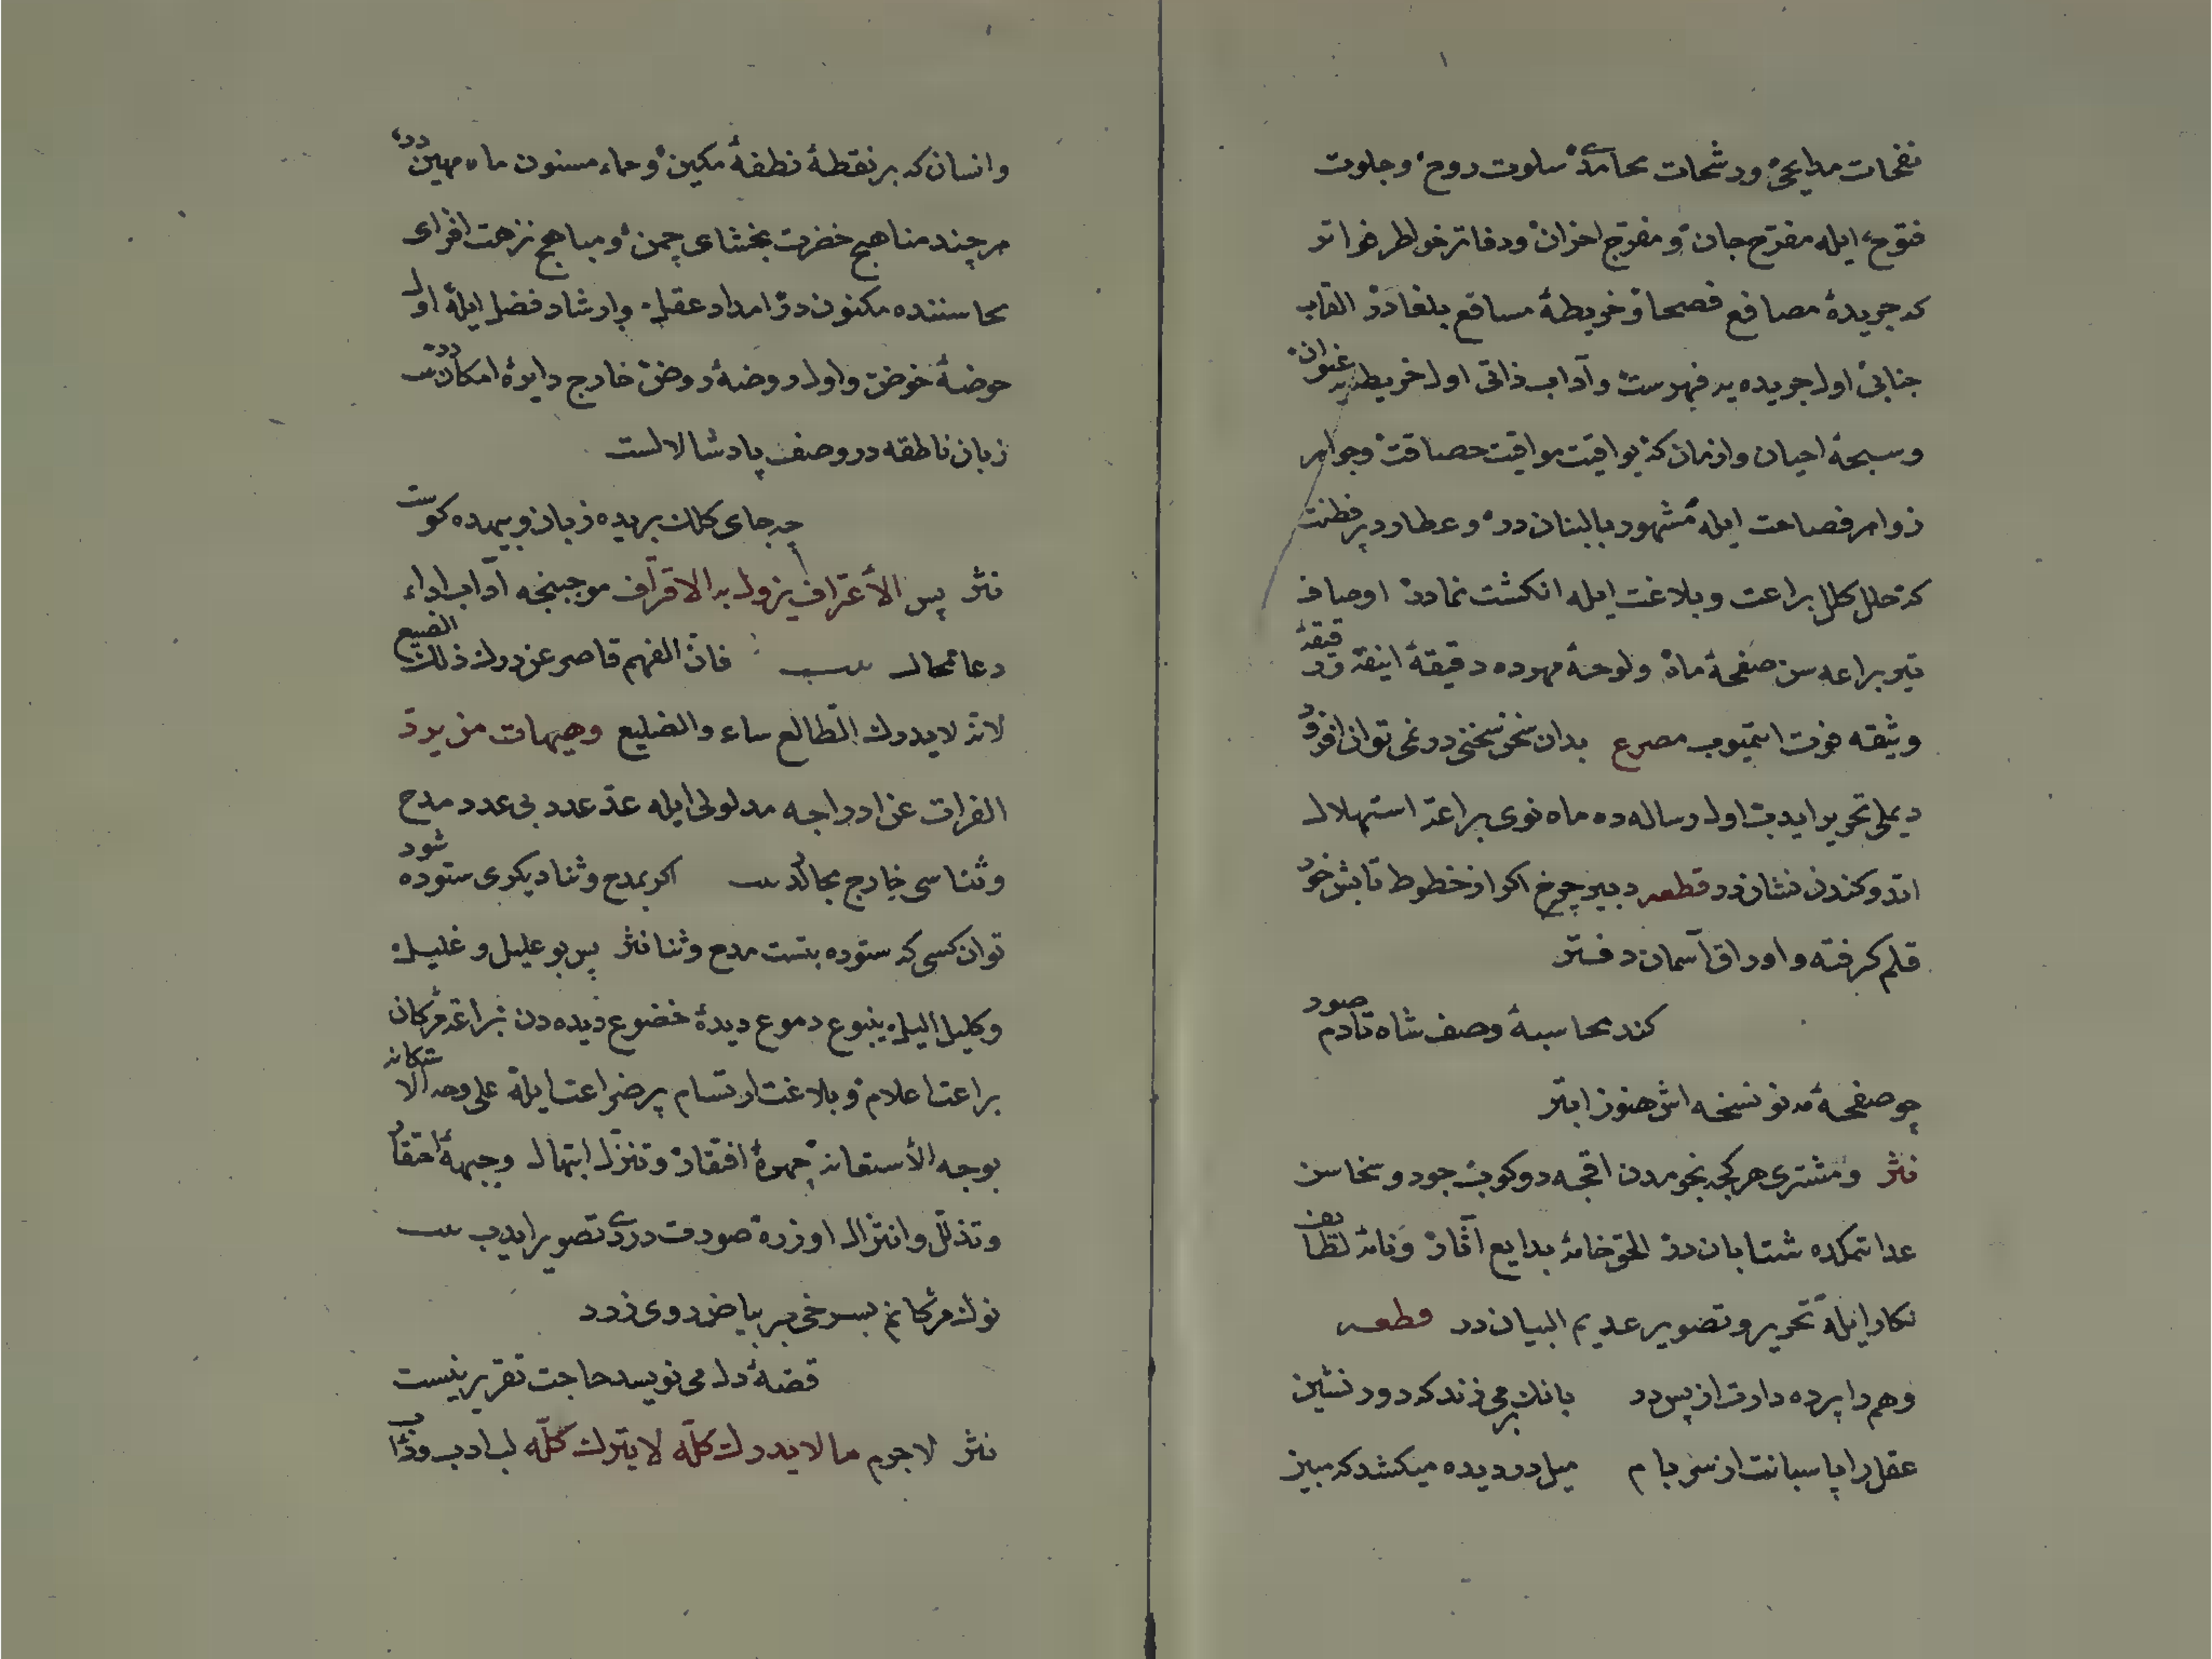 نفحات مدایحیْ ورشحات محامدیْ سلوت روح و جلوت
فتوح ایله مفرّح جان و مفرّج احزان ودفاتر خواطر خواتر
که جریدهٔ مصاقع فصحا و خریطهٔ مساقع بلغادر القاب
جنابیْ اول جریده یه فهرست وآداب ذاتی اول خریطه یه عنوان
وسبحهٔ احیان وازمان که یواقیت مواقیت حصافت وجواهر
زواهر فصاحت ایله مشهود بالبنان در و عطارد پر فطنت
که حلل کلل براعت وبلاغت ایله انکشت نمادر اوصاف
تیر براعه سن صفحهٔ ماه ولوحهٔ مهرده دقیقهٔ انیقه و دقیقهٔ
وثیقه فوت ایتمیوب مصرع بدان سخن سخنی در نمی توان افزود
دیملی تحریر ایدب اول رساله ده ماه نوی براعة استهلال
اتدوکندن نشاندر قطعه دبیر چرخ اکر از خطوط تابش خود
قلم کرفته و اوراق آسمان دفتر
کند محاسبهٔ وصف شاه تا دم صور
چو صفحهٔ مه نو نسخه اش هنوز ابتر
نثر ومشتری هر کجه نجومدن اقچه دوکوب جود و سخاسن
عدا تمکده شتابان در الحق خامهٔ بدایع آثار و نامهٔ لطایف
نکار ایله تحریر و تصویر عدیم البیان در قطعه
وهم را پرده دارت از پس در بانك بر می زند که دور نشین
عقل را پاسبانت از سر بام میل در دیده میکشد که مبین
وانسان که بر نقطهٔ نطفهٔ مکین و حماء مسنون ماء مهین در
هر چند مناهج خضرت بخشای چمن و مباهج نزهت افزای
محاسننده مکنون در امداد عقل وارشاد فضل ایله اول
حوضهٔ خوض و اول روضهٔ روض خارج دایرهٔ امکاندر بیت
زبان ناطقه در وصف پادشا لالست
چه جای کلك بریده زبان و بیهده کوست
نثر پس الأعتراف یزول به الاقتراف موجبنجه آداب اداء
دعا محال بیت فانّ الفهم قاصر عن درك ذلك الضیع
لانّه لا یدرك الطالع ساء والضلیع وهیهات من یردّ
الفرات عن ادراجه مدلولی ایله عدّ عدد بی عدد مدح
وثناسی خارج مجالدر بیت اکر بمدح وثنا دیکری ستوده شود
توان کسی که ستوده بتست مدح وثنا نثر پس بو علیل و غلیل
وکلیل الیله ینبوع دموع دیدهٔ خضوع دیده دن یراعهٔ مژکان
براعت اعلام و بلاغت ارتسام پر ضراعت ایله علی وجه الاستکانه
بوجه الأستعانه چهرهٔ افتقار و تنزل ابتهال وجبههٔ احتقار
وتذلّل وانتزال اوزره صورت دردی تصویر ایدب بیت
نوك مژکانم بسرخی بر بیاض روی زرد
قصهٔ دل می نویسد حاجت تقریر نیست
نثر لاجرم ما لا یدرك کلّه لا یترك کلّه لب ادب و ذاب